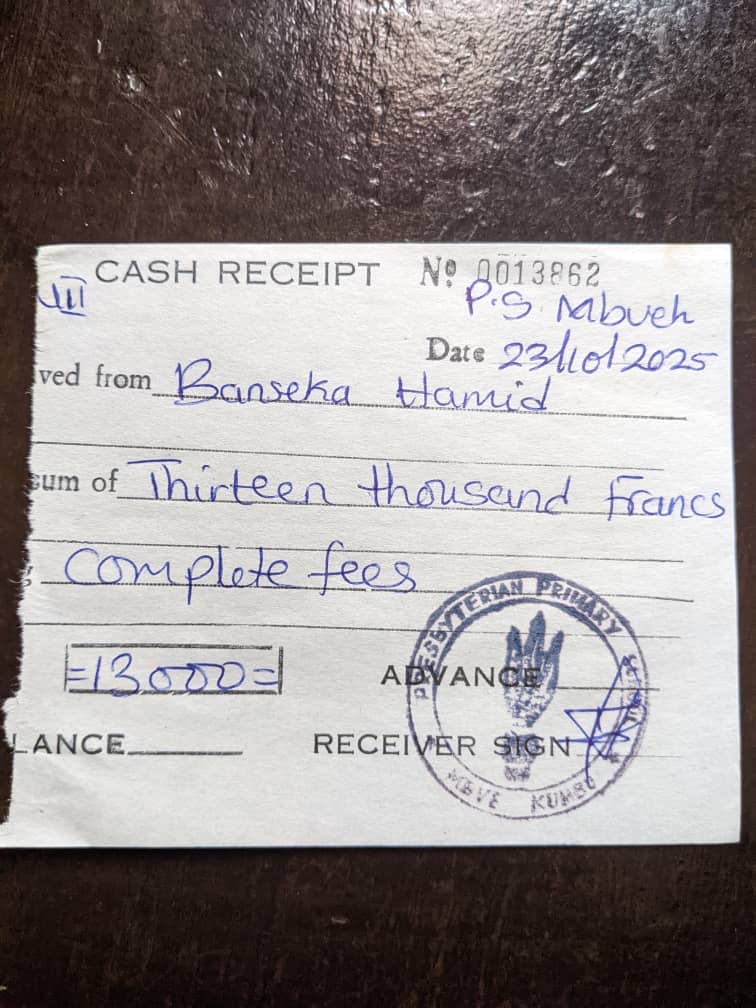 CASH RECEIPT Nº 0013862
III
P.S Mbueh
Date 23/10/2025
ved from Banseka Hamid
sum of Thirteen thousand Francs
Complete fees
=13000= ADVANCE
LANCE RECEIVER SIGN
PRESBYTERIAN PRIMARY
KUMBO